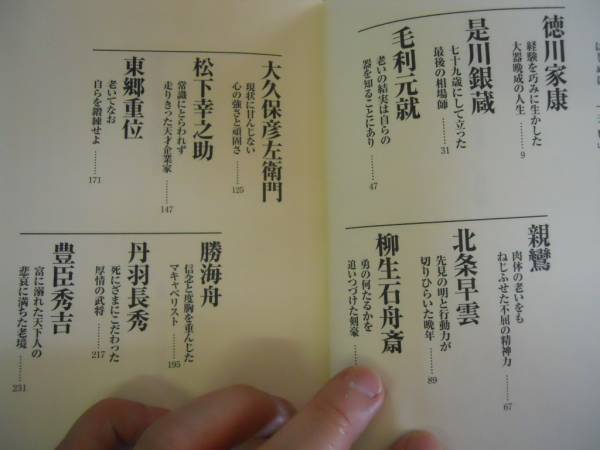 徳川家康
経験を巧みに生かした
大器晩成の人生………9
是川銀蔵
七十九歳にして立った
最後の相場師………31
毛利元就
老いの結実は自らの
器を知ることにあり………47
親鸞
肉体の老いをも
ねじふせた不屈の精神力………67
北条早雲
先見の明と行動力が
切りひらいた晩年………89
柳生石舟斎
勇の何たるかを
追いつづけた剣豪………
大久保彦左衛門
現状に甘んじない
心の強さと頑固さ………125
松下幸之助
常識にとらわれず
走りきった天才企業家………147
東郷重位
老いてなお
自らを鍛錬せよ………171
勝海舟
信念と度胸を重んじた
マキャベリスト………195
丹羽長秀
死にざまにこだわった
厚情の武将………217
豊臣秀吉
富に溺れた天下人の
悲哀に満ちた老境………231